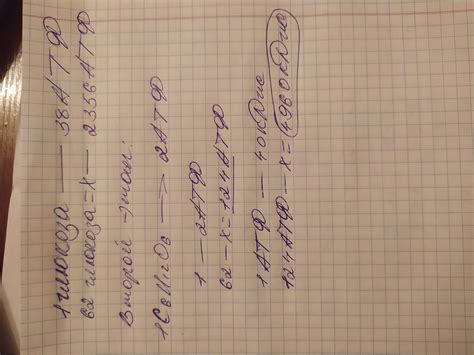 1 глюкоза — 38 АТФ
62 глюкоза = x — 2356 АТФ
Второй этап:
1C6H12O6 → 2АТФ
1 — 2АТФ
62 — x = 124АТФ
1 АТФ — 40кДж
124АТФ — x = 4960кДж